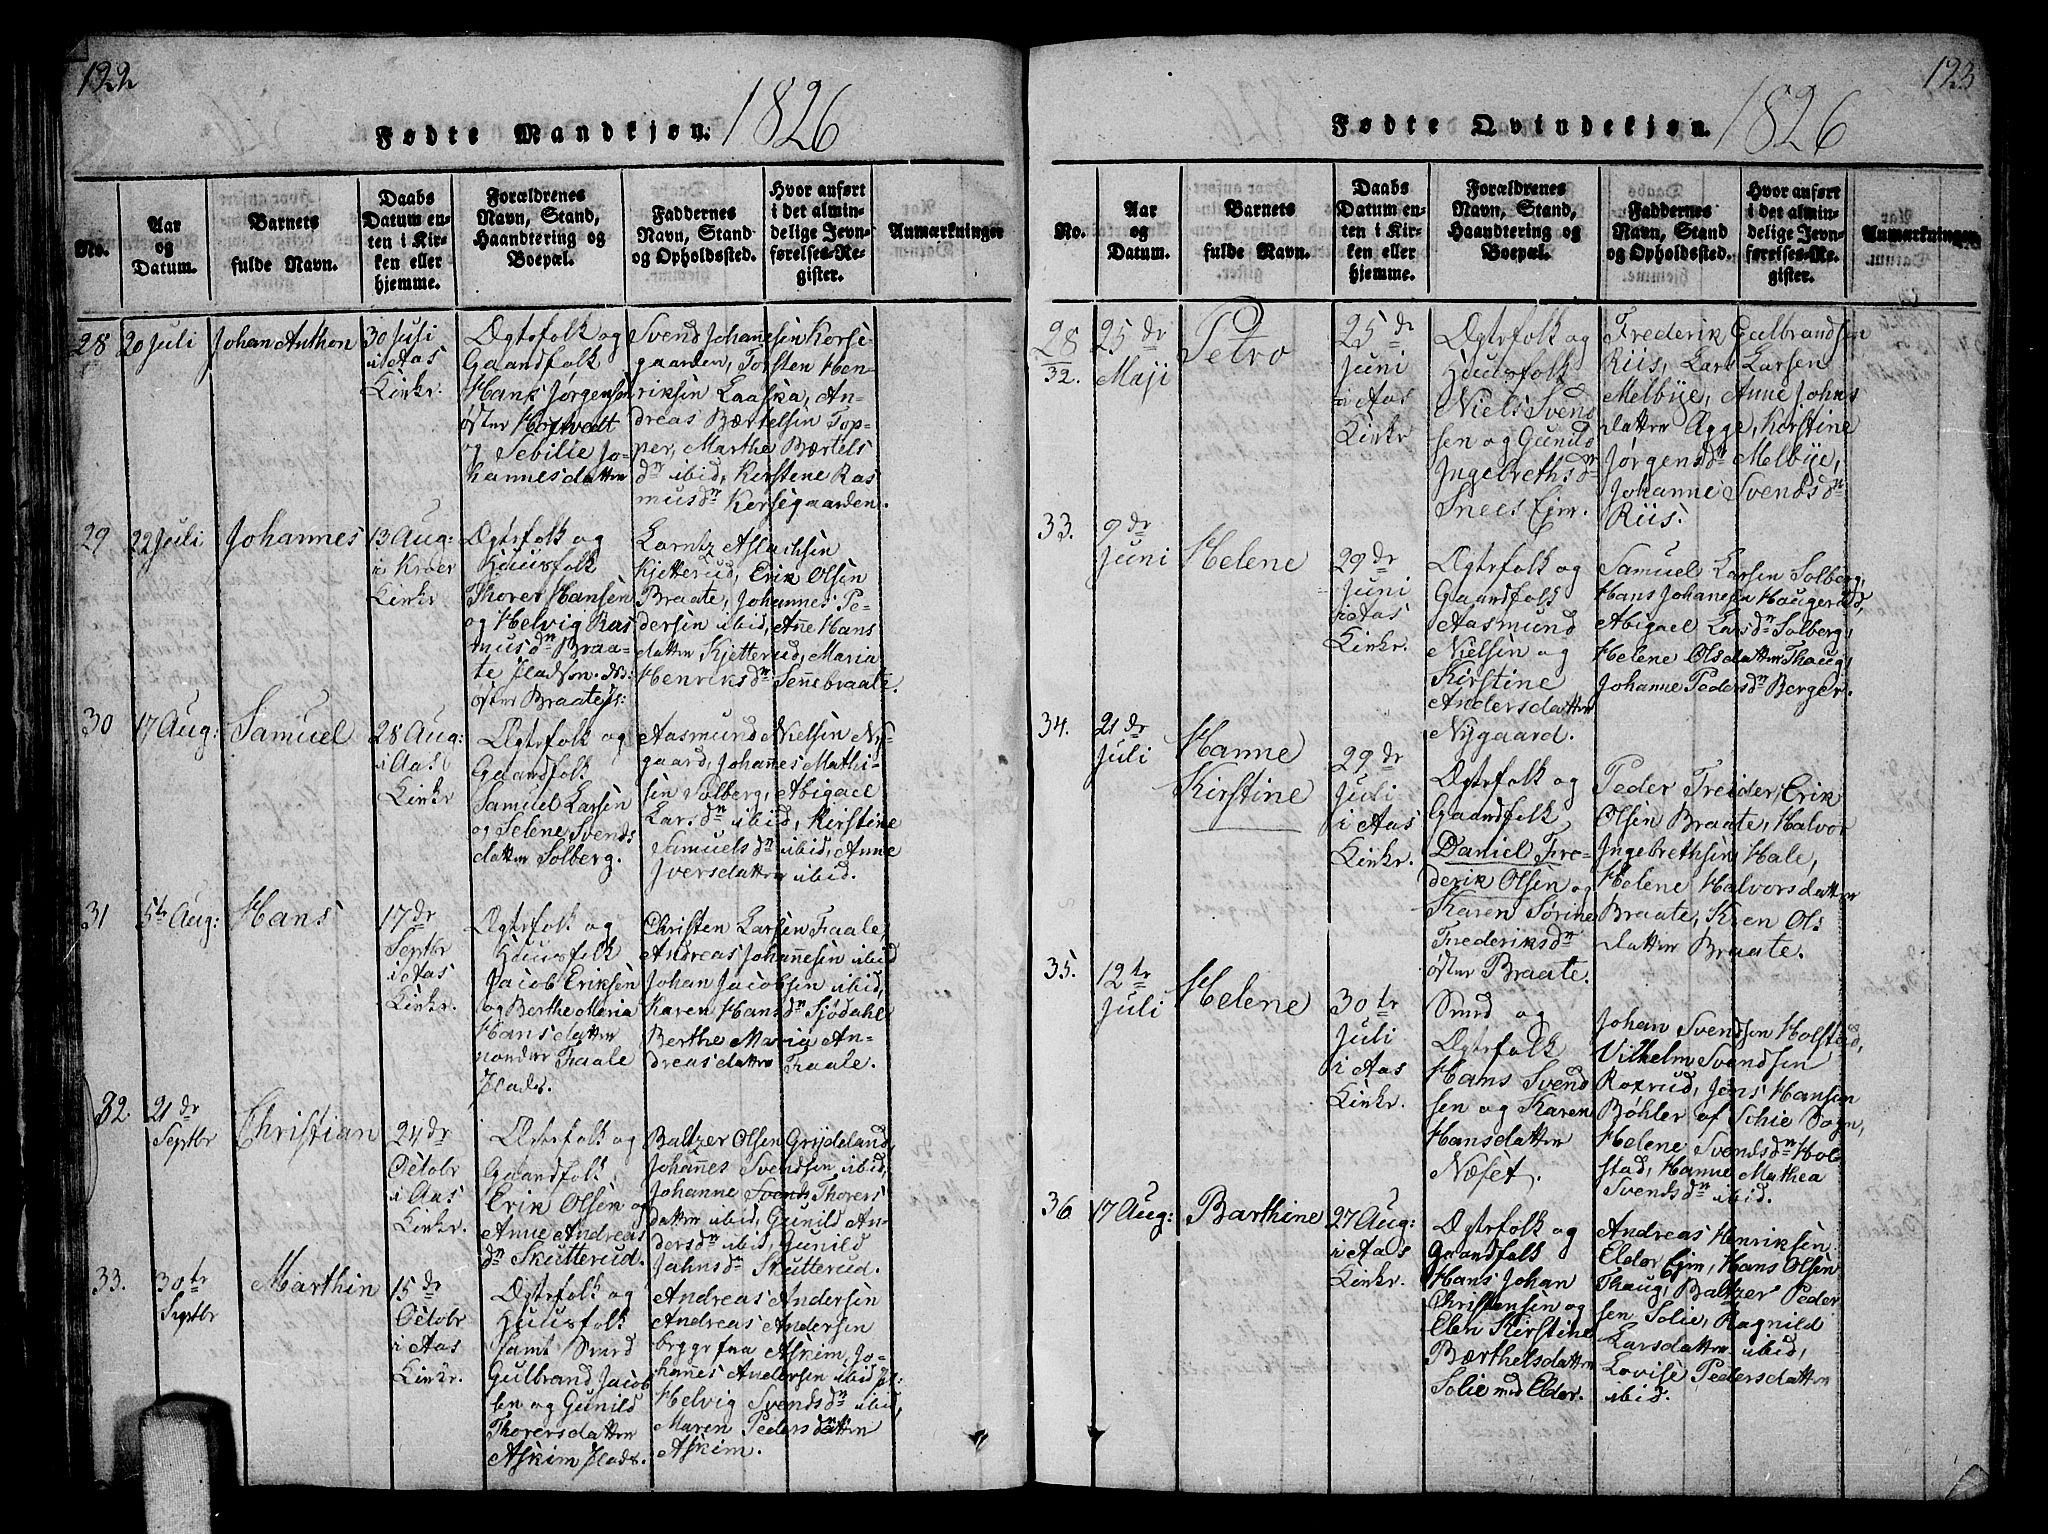 122
Fødte Mandkjøn. 1826
No.
Aar
og
Datum.
Barnets
fulde Navn.
Daabs
Datum en-
ten i Kir-
ken eller
hjemme.
Forældrenes
Navn, Stand,
Haandtering og
Boepæl.
Faddernes
Navn, Stand
og Opholdssted.
Hvor anført
i det almin-
delige Jevn-
førelses-Re-
gister.
Anmærkninger
28
20 Juli
Johan Anthon
30 Juli
i Aas
Kirke.
Ægtefolk og
Gaardfolk
Hans Jørgensen
øster Hostvedt
og Sebilie Jo-
hannesdatter
Svend Johannesen Korse
gaarden, Torsten Hen-
riksen Laaska, An-
dreas Bærtelsen Top-
per, Marthe Bærtels
dr ibid, Kirstene Ras
musdr Korsegaarden.
29
22 Juli
Johannes
13 Aug:
i Kroer
Kirke
Ægtefolk og
Huusfolk
Thorer Hansen
og Helvig Ras
musdr Braa-
te
øster Braate
Lorntz Aslachsen
Kjetterud, Erik Olsen
Braate, Johannes Pe-
dersen ibid, Anne Hans
datter Kjetterud, Maria
Henriksdr Sennebraate.
30
17 Aug:
Samuel
28 Aug:
i Aas
Kirke
Ægtefolk og
Gaardfolk
Samuel Larsen
og Selene Svends
datter Solberg.
Aasmund Nielsen Ny-
gaard, Johannes Mathi-
sen Solberg, Abigael
Larsdr ibid, Kirstine
Samuelsdr ibid, Anne
Iversdatter ibid.
31
5te Aug:
Hans
17 dr
Septbr
i Aas
Kirke.
Ægtefolk og
Huusfolk
Jacob Eriksen
og Berthe Maria
Hansdatter
nordre Faale
Christen Larsen Faale,
Andreas Johannesen ibid
Johan Jacobsen ibid,
Karen Hansdr Sjødahl
Berthe Maria An-
dreasdatter Faale.
32.
21 dr
Septbr
Christian
24 dr
Octobr
i Aas
Kirke.
Ægtefolk og
Gaardfolk
Erik Olsen og
Anne Andreas
dr Skutterud.
Baltzer Olsen Grydeland,
Johannes Svendsen ibid,
Johanne Svends Thorers
datter ibid, Gunild An-
dersdr ibid, Gunild
Jahnsdr Skutterud.
33.
30 te
Septbr
Marthin
15 dr
Octobr
i Aas
Kirke.
Ægtefolk og
Huusfolk
samt Smed
Gulbrand Jacob
sen og Gunild
Thorersdatter
Askim
Andreas Andersen
Andreas Andersen
begge fra Askim, Jo-
hannes Andersen ibid
Helvig Svendsdr ibid,
Maren Pedersdatter
Askim.
123
Fødte Qvindekjøn. 1826
No.
Aar
og
Datum.
Barnets
fulde Navn.
Daabs
Datum en-
ten i Kir-
ken eller
hjemme.
Forældrenes
Navn, Stand,
Haandtering og
Boepæl.
Faddernes
Navn, Stand
og Opholdssted.
Hvor anført
i det almin-
delige Jevn-
førelses-Re-
gister.
Anmærkninger.
28
32.
25 dr
Maji
Petro
25 dr
Juni
i Aas
Kirke
Ægtefolk og
Huusfolk
Niels Svend
sen og Gunild
Ingebrethsdr
Snees Ejer.
Frederik Gulbrandsen
Riis, Lars Larsen
Melbye, Anne Johns
datter Agge, Kirstine
Jørgensdr Melbye,
Johanne Svendsdr
Riis.
33.
9 dr
Juni
Helene
29 dr
Juni
i Aas
Kirke.
Ægtefolk og
Gaardfolk
Aasmund
Nielsen og
Kirstine
Andersdatter
Nygaard.
Samuel Larsen Solberg,
Hans Johanesen Haugerud,
Abigael Larsdr Solberg,
Helene Olsdatter Thaug,
Johanne Pedersdr Berger.
34.
21 dr
Juli
Hanne
Kirstine
29 dr
Juli
i Aas
Kirke.
Ægtefolk og
Gaardfolk
Daniel Fre-
derik Olsen og
Karen Sørine
Frederiksdr
øster Braate.
Peder Freider, Erik
Olsen Braate, Halvor
Ingebrethsen Hale,
Helene Halvorsdatter
Braate, Karen Ols
datter Braate.
35.
12 te
Juli
Helene
30 te
Juli
i Aas
Kirke.
Smed og
Ægtefolk
Hans Svend
sen og Karen
Hansdatter
Næset.
Johan Svendsen Holstad,
Vilhelm Svendsen
Roxrud, Jens Hansen
Bøhler af Schie Sogn,
Helene Svendsdr Hol-
stad, Hanne Mathea
Svendsdr ibid.
36
17 Aug:
Barthine
27 Aug:
i Aas
Kirke.
Ægtefolk og
Gaardfolk
Hans Johan
Christensen og
Elen Kirstine
Bærthelsdatter
Solie med Eldor.
Andreas Henriksen
Eldor Ejer, Hans Olsen
Thaug, Baltzer Peder
sen Solie, Ragnild
Larsdatter ibid,
Lovise Pedersdatter
ibid.